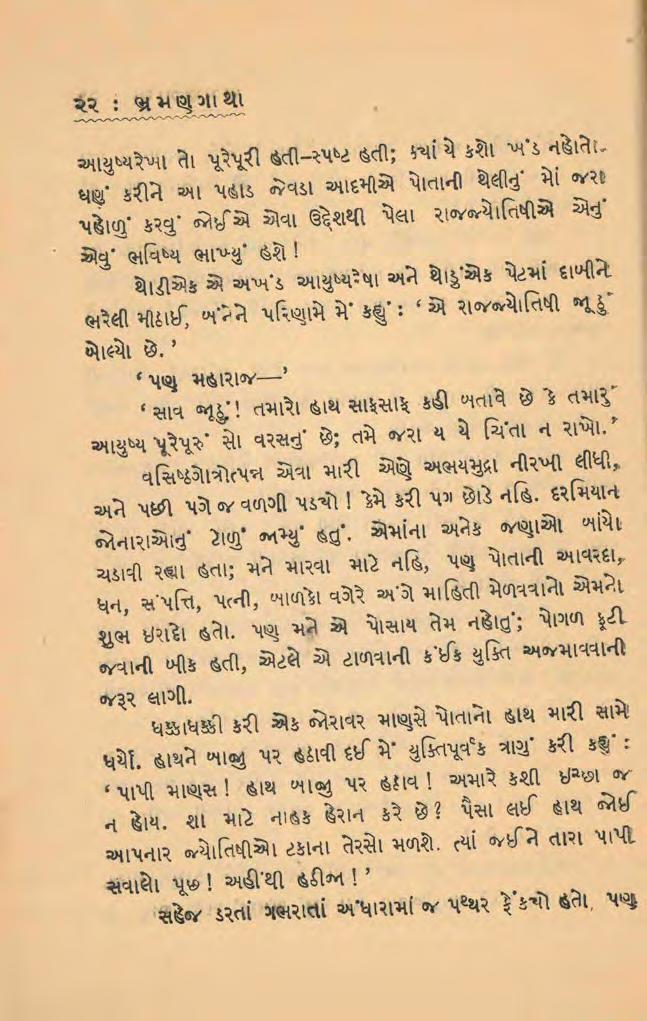 ૨૨ : ભ્રમણગાથા
આયુષ્યરેખા તો પૂરેપૂરી હતી–સ્પષ્ટ હતી; ક્યાં યે કશો ખંડ નહોતો.
ઘણું કરીને આ પહાડ જેવડા આદમીએ પોતાની થેલીનું મોં જરા
પહોળું કરવું જોઈએ એવા ઉદ્દેશથી પેલા રાજજ્યોતિષીએ એનું
એવું ભવિષ્ય ભાખ્યું હશે !
થોડીએક એ અખંડ આયુષ્યરેષા અને થોડુંએક પેટમાં દાબીને
ભરેલી મીઠાઈ, બંનેને પરિણામે મેં કહ્યું : ‘ એ રાજજ્યોતિષી જૂઠું
બોલ્યો છે. ’
‘ પણ મહારાજ—’
‘ સાવ જૂઠું! તમારો હાથ સાફસાફ કહી બતાવે છે કે તમારું
આયુષ્ય પૂરેપૂરું સો વરસનું છે; તમે જરા ય યે ચિંતા ન રાખો. ’
વસિષ્ઠગોત્રોત્પન્ન એવા મારી એણે અભયમુદ્રા નીરખી લીધી,
અને પછી પગે જ વળગી પડ્યો ! કેમે કરી પગ છોડે નહિ. દરમિયાન
જોનારાઓનું ટોળું જામ્યું હતું. એમાંના અનેક જણાઓ બાંયો
ચડાવી રહ્યા હતા; મને મારવા માટે નહિ, પણ પોતાની આવરદા,
ધન, સંપત્તિ, પત્ની, બાળકો વગેરે અંગે માહિતી મેળવવાનો એમનો
શુભ ઇરાદો હતો. પણ મને એ પોસાય તેમ નહોતું; પોગળ ફૂટી
જવાની બીક હતી, એટલે એ ટાળવાની કંઈક યુક્તિ અજમાવવાની
જરૂર લાગી.
ધક્કાધક્કી કરી એક જોરાવર માણસે પોતાનો હાથ મારી સામે
ધર્યો. હાથને બાજુ પર હઠાવી દઈ મેં યુક્તિપૂર્વક ત્રાગું કરી કહ્યું :
‘ પાપી માણસ ! હાથ બાજુ પર હઠાવ ! અમારે કશી ઇચ્છા જ
ન હોય. શા માટે નાહક હેરાન કરે છે? પૈસા લઈ હાથ જોઈ
આપનાર જ્યોતિષીઓ ટકાના તેરસો મળશે. ત્યાં જઈને તારા પાપી
સવાલો પૂછ ! અહીંથી હઠીજા ! ’
સહેજ ડરતાં ગભરાતાં અંધારામાં જ પથ્થર ફેંક્યો હતો, પણ